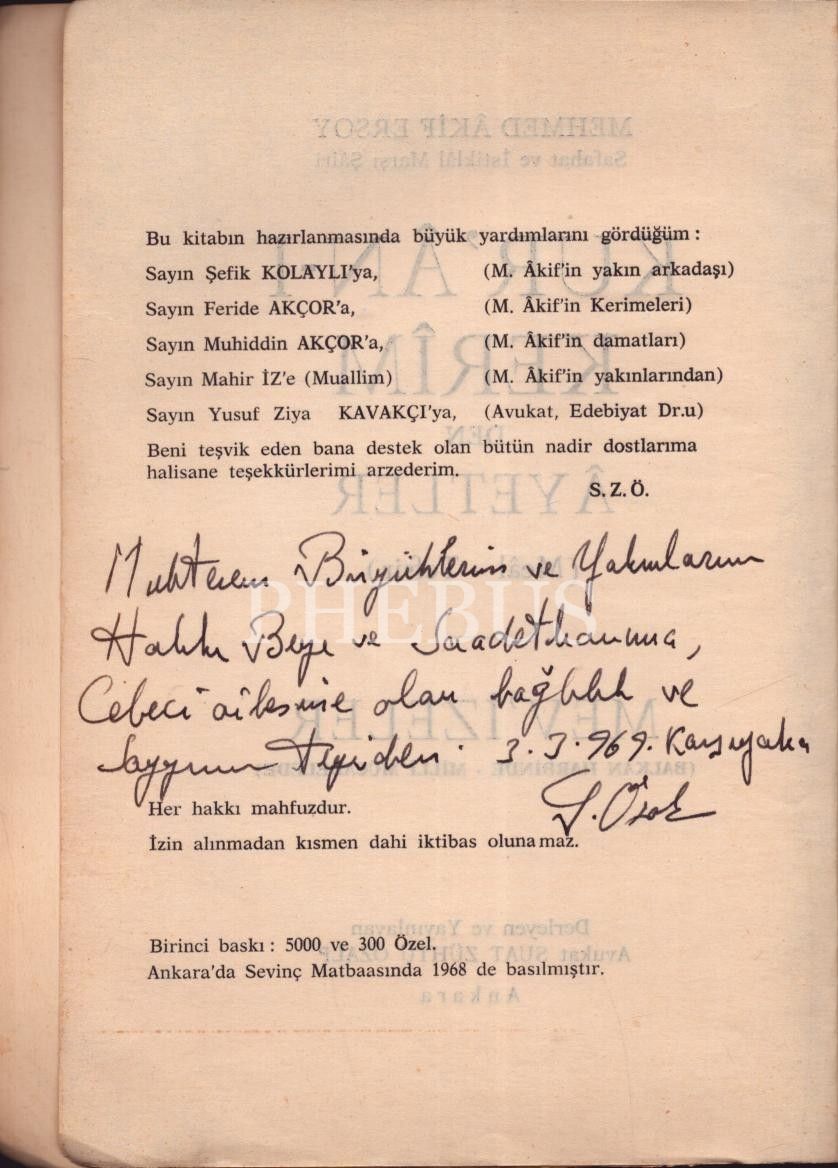 Bu kitabın hazırlanmasında büyük yardımlarını gördüğüm :
Sayın Şefik KOLAYLI'ya, (M. Âkif'in yakın arkadaşı)
Sayın Feride AKÇOR'a, (M. Âkif'in Kerimeleri)
Sayın Muhiddin AKÇOR'a, (M. Âkif'in damatları)
Sayın Mahir İZ'e (Muallim) (M. Âkif'in yakınlarından)
Sayın Yusuf Ziya KAVAKÇI'ya, (Avukat, Edebiyat Dr.u)
Beni teşvik eden bana destek olan bütün nadir dostlarıma
halisane teşekkürlerimi arzederim.
S. Z. Ö.
Muhterem Büyüklerim ve Yakınlarım
PHEBUS
Hakkı Beye ve Saadet hanıma,
Cebeci ailesine olan bağlılık ve
3.3.969. Karşıyaka
Her hakkı mahfuzdur.
İzin alınmadan kısmen dahi iktibas olunamaz.
Birinci baskı : 5000 ve 300 Özel.
Ankara'da Sevinç Matbaasında 1968 de basılmıştır.